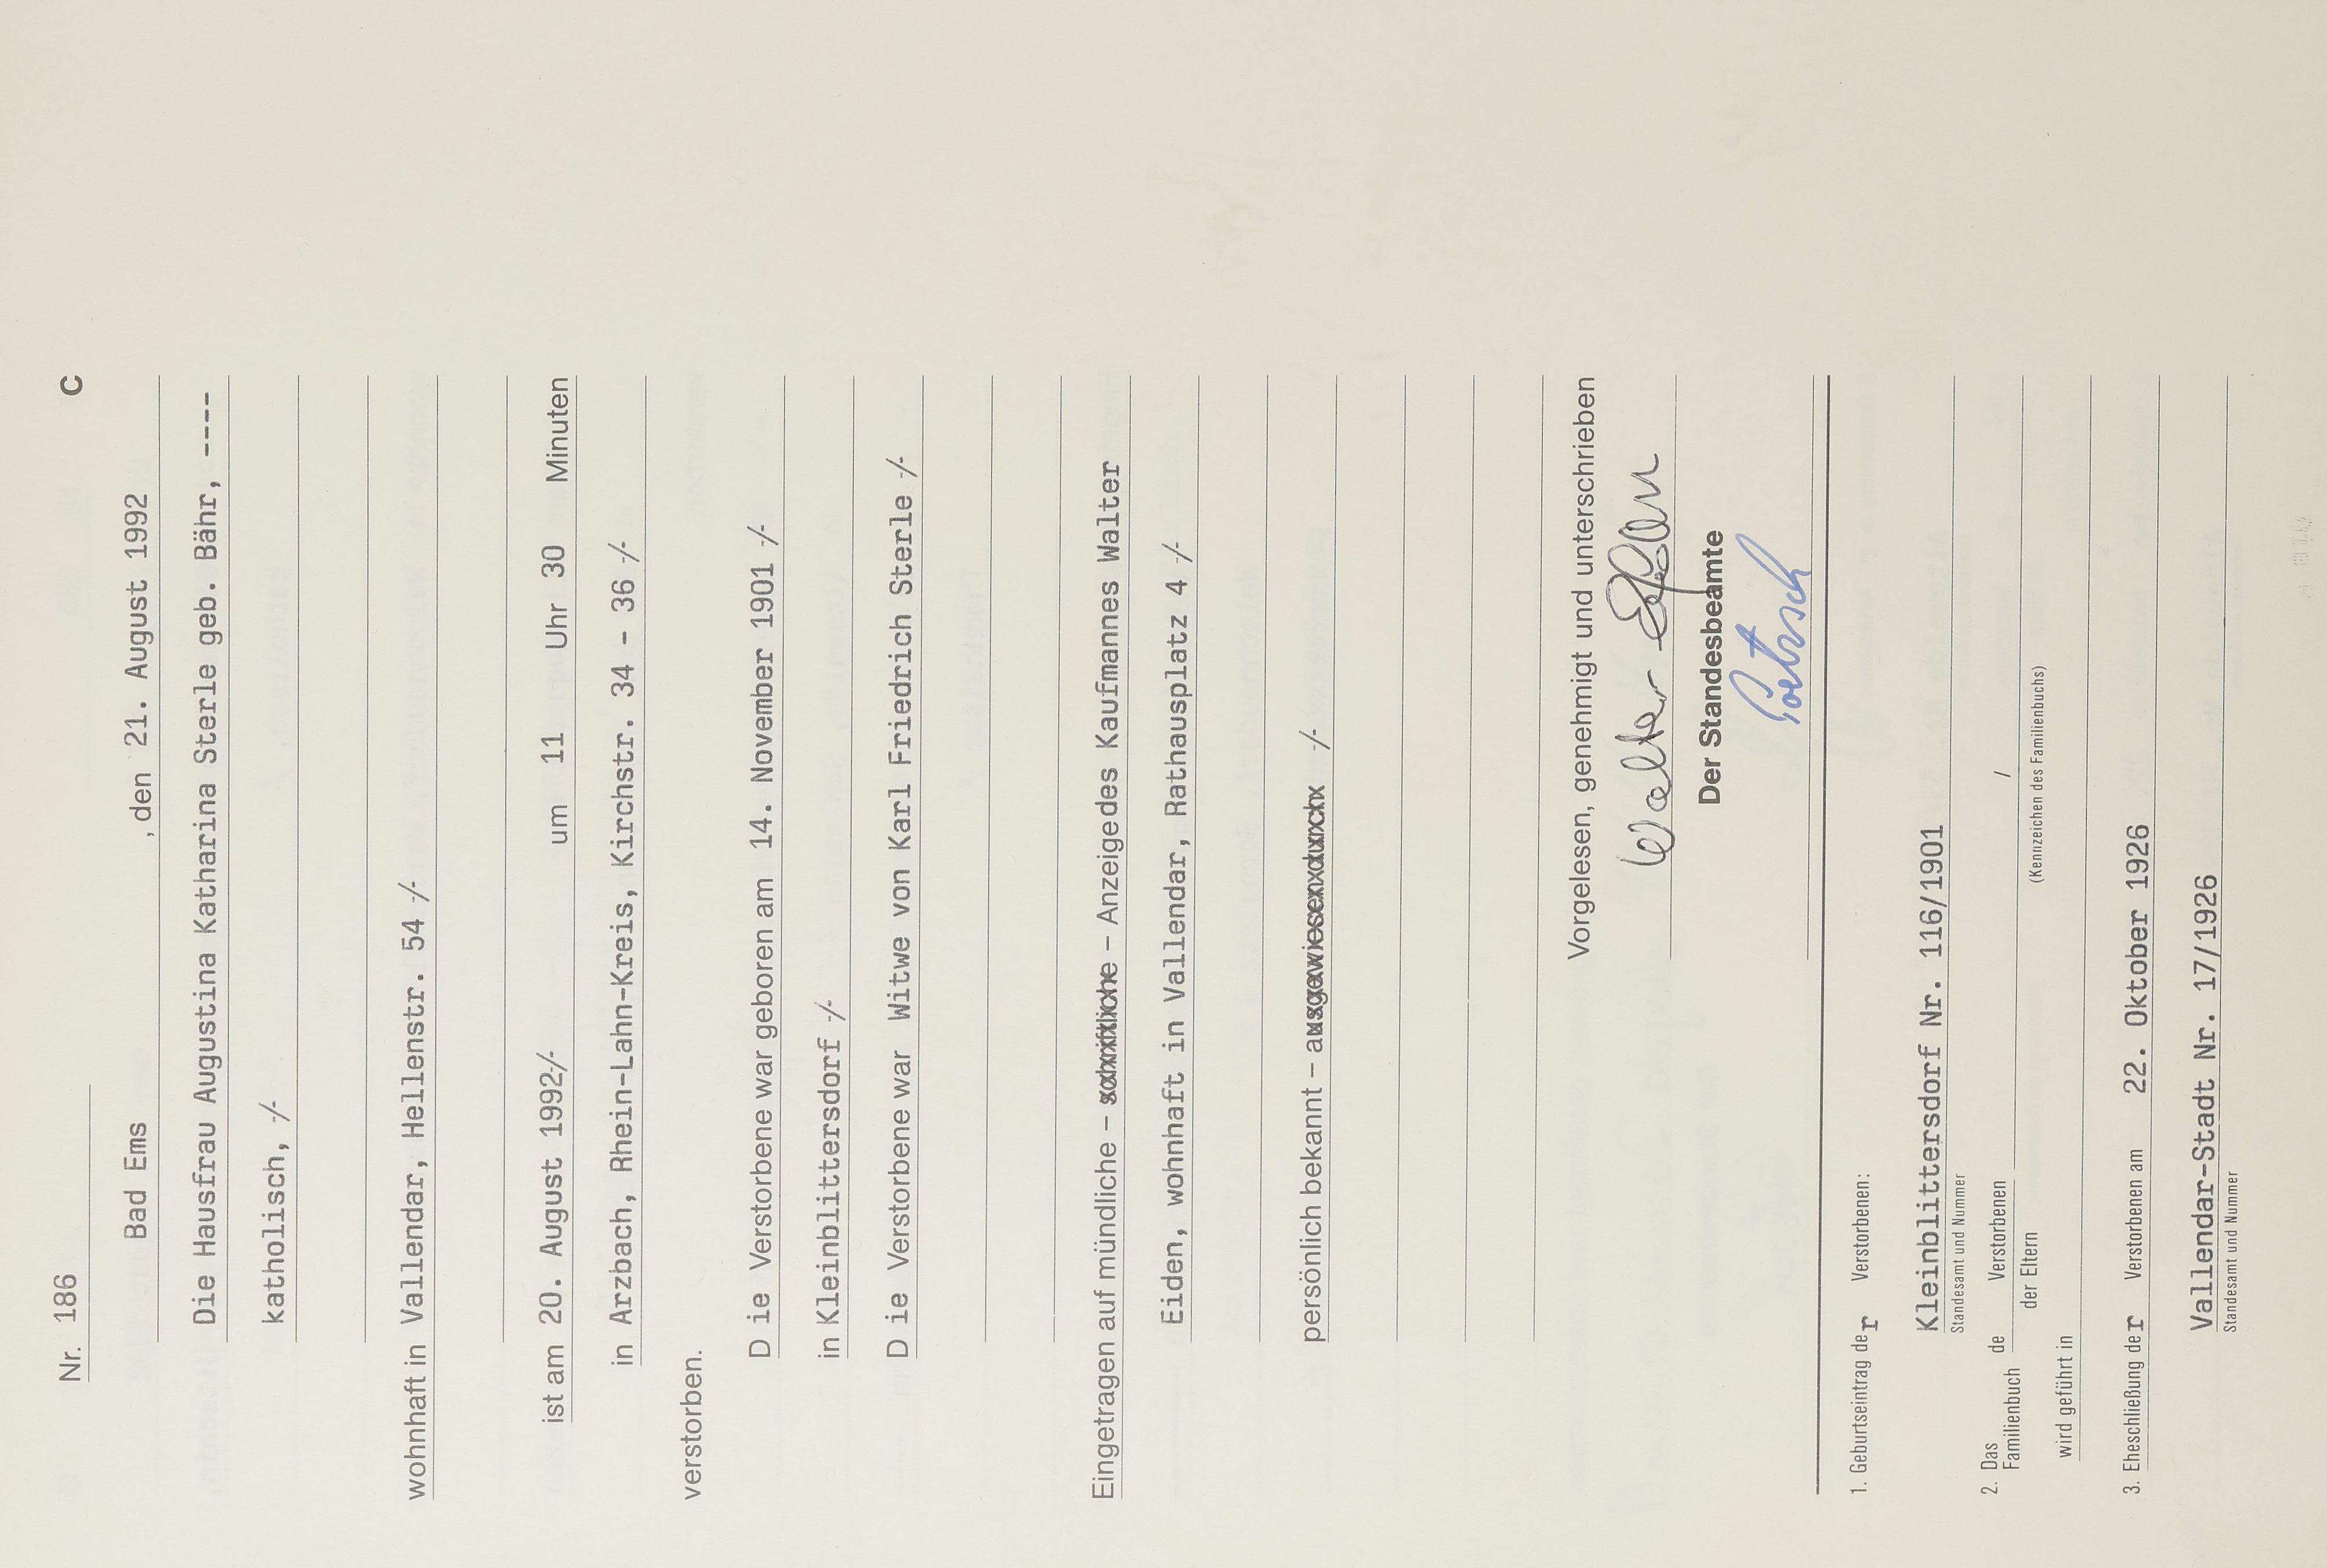 Nr. 186 C
Bad Ems , den 21. August 1992
Die Hausfrau Augustina Katharina Sterle geb. Bähr, ----
katholisch, -/-
wohnhaft in Vallendar, Hellenstr. 54 -/-
ist am 20. August 1992-/- um 11 Uhr 30 Minuten
in Arzbach, Rhein-Lahn-Kreis, Kirchstr. 34 - 36 -/-
verstorben.
D ie Verstorbene war geboren am 14. November 1901 -/-
in Kleinblittersdorf -/-
D ie Verstorbene war Witwe von Karl Friedrich Sterle -/-
Eingetragen auf mündliche – schriftliche – Anzeige des Kaufmannes Walter
Eiden, wohnhaft in Vallendar, Rathausplatz 4 -/-
persönlich bekannt – ausgewiesen durch -/-
Vorgelesen, genehmigt und unterschrieben
Walter Eiden
Der Standesbeamte
1. Geburtseintrag der Verstorbenen:
Kleinblittersdorf Nr. 116/1901
Standesamt und Nummer
2. Das Familienbuch de Verstorbenen /
der Eltern (Kennzeichen des Familienbuchs)
wird geführt in
3. Eheschließung der Verstorbenen am 22. Oktober 1926
Vallendar-Stadt Nr. 17/1926
Standesamt und Nummer